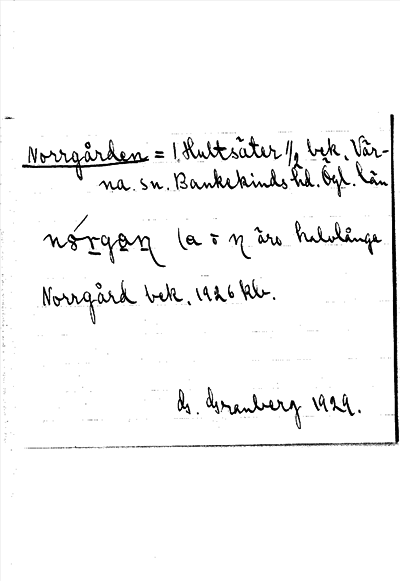 Norrgården = 1, Hultsäter 1/2 bek. Vär-
na. sn. Bankekinds hd. Ögl. län
(a o n äro halvlånga
Norrgård bek. 1926 kb.
G. Granberg 1929.